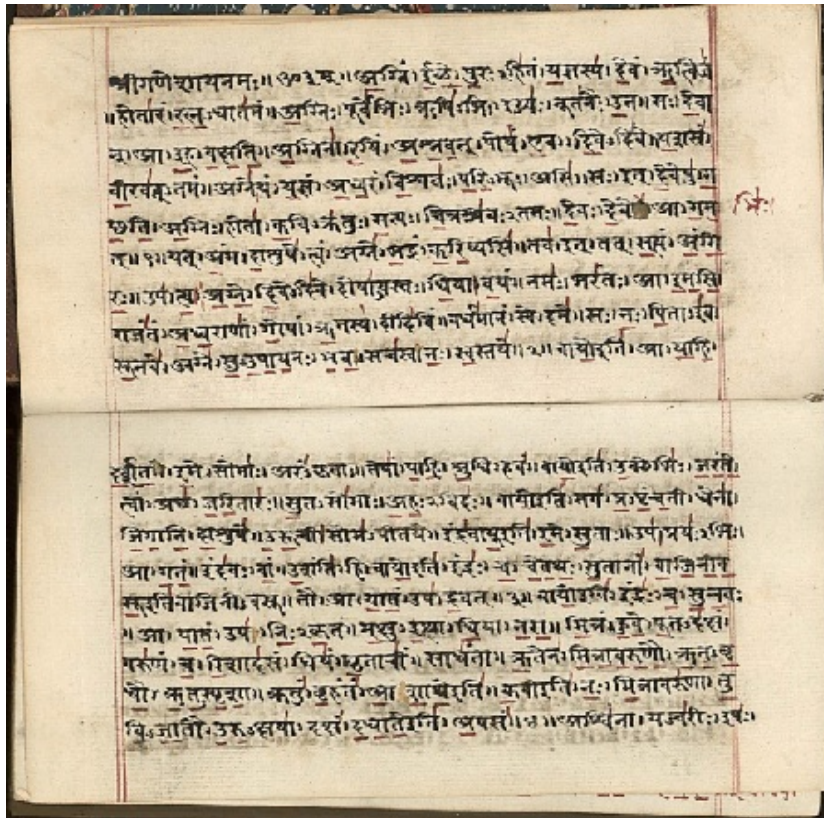 श्रीगणेशायनमः॥ॐ३म्॥अग्निं।ईळे।पुरः।हितं।यज्ञस्य।देवं।ऋत्विजं
॥होतारं।रत्न।धातमं॥अग्निः।पूर्वेभिः।ऋषि।भिः।ईड्यः।नूतनैः।उत॥सः।देवा
न्।आ।इह।वक्षति॥अग्निना।रयिं।अश्नवत्।पोषं।एव।दिवे।दिवे॥यशसं
वीरवत्।तमं॥अग्नेयं।यज्ञं।अध्वरं।विश्वतः।परि।भूः।असि॥सः।इत्।देवेषु।ग
छति।अग्निः।होता।कवि।क्रतुः।सत्यः।चित्रश्रवः।तमः॥देवः।देवे आ।गम भिः।
त्॥१॥यत्।अंग।दाशुषे।त्वं।अग्ने।भद्रं।करिष्यसि॥तव।इत्।तत्।सत्यं।अंगि
रः॥उप।त्वा।अग्ने।दिवे।दिवे।दोषावस्तः।धिया।वयं॥नमः।भरंतः।आ।इमसि
राजंतं।अध्वराणां।गोपां।ऋतस्य।दीदिविं॥वर्धमानं।स्वे।दमे॥सः।नः।पिता।इव
सूनवे।अग्ने।सुउपायनः।भव॥सचस्व।नः।स्वस्तये॥२॥वायोइति।आ।याहि।
दर्शत।इमे।सोमाः।अरं।कृताः॥तेषां।पाहि।श्रुधि।हवं॥वायोइति।उक्थेभिः।जरंते
त्वां।अछ।जरितारः॥सुत।सोमाः।अहः।विदः॥वायोइति।तव।प्र।पृंचती।धेना।
जिगाति।दाशुषे॥उरूची।सोम।पीतये॥इंद्रवायूइति।इमे।सुताः॥उप।प्रयः।भिः।
आ।गतं॥इंदवः।वां।उशंति।हि॥वायोइति।इंद्रः।च।चेतथः।सुतानां।वाजिनीव
सूइतिवाजिनीवसू॥तौ।आ।यातं।उप।द्रवत्॥३॥वायोइति।इंद्रः।च।सुन्वतः
॥आ।यातं।उप।निःकृतं॥मक्षु।इत्था।धिया।नरा॥मित्रं।हुवे।पूत।दक्षं।
वरुणं।च।रिशादसं॥धियं।घृताचीं।साधंता॥ऋतेन।मित्रावरुणौ।ऋत।वृ
धौ।ऋतस्पृशा॥क्रतुं।बृहंतं।आशाथेइति॥कवीइति।नः।मित्रावरुणा।तु
वि।जातौ।उरु।क्षया॥दक्षं।दधातेइति।अपसं॥४॥अश्विना।यज्वरीः।इषः।